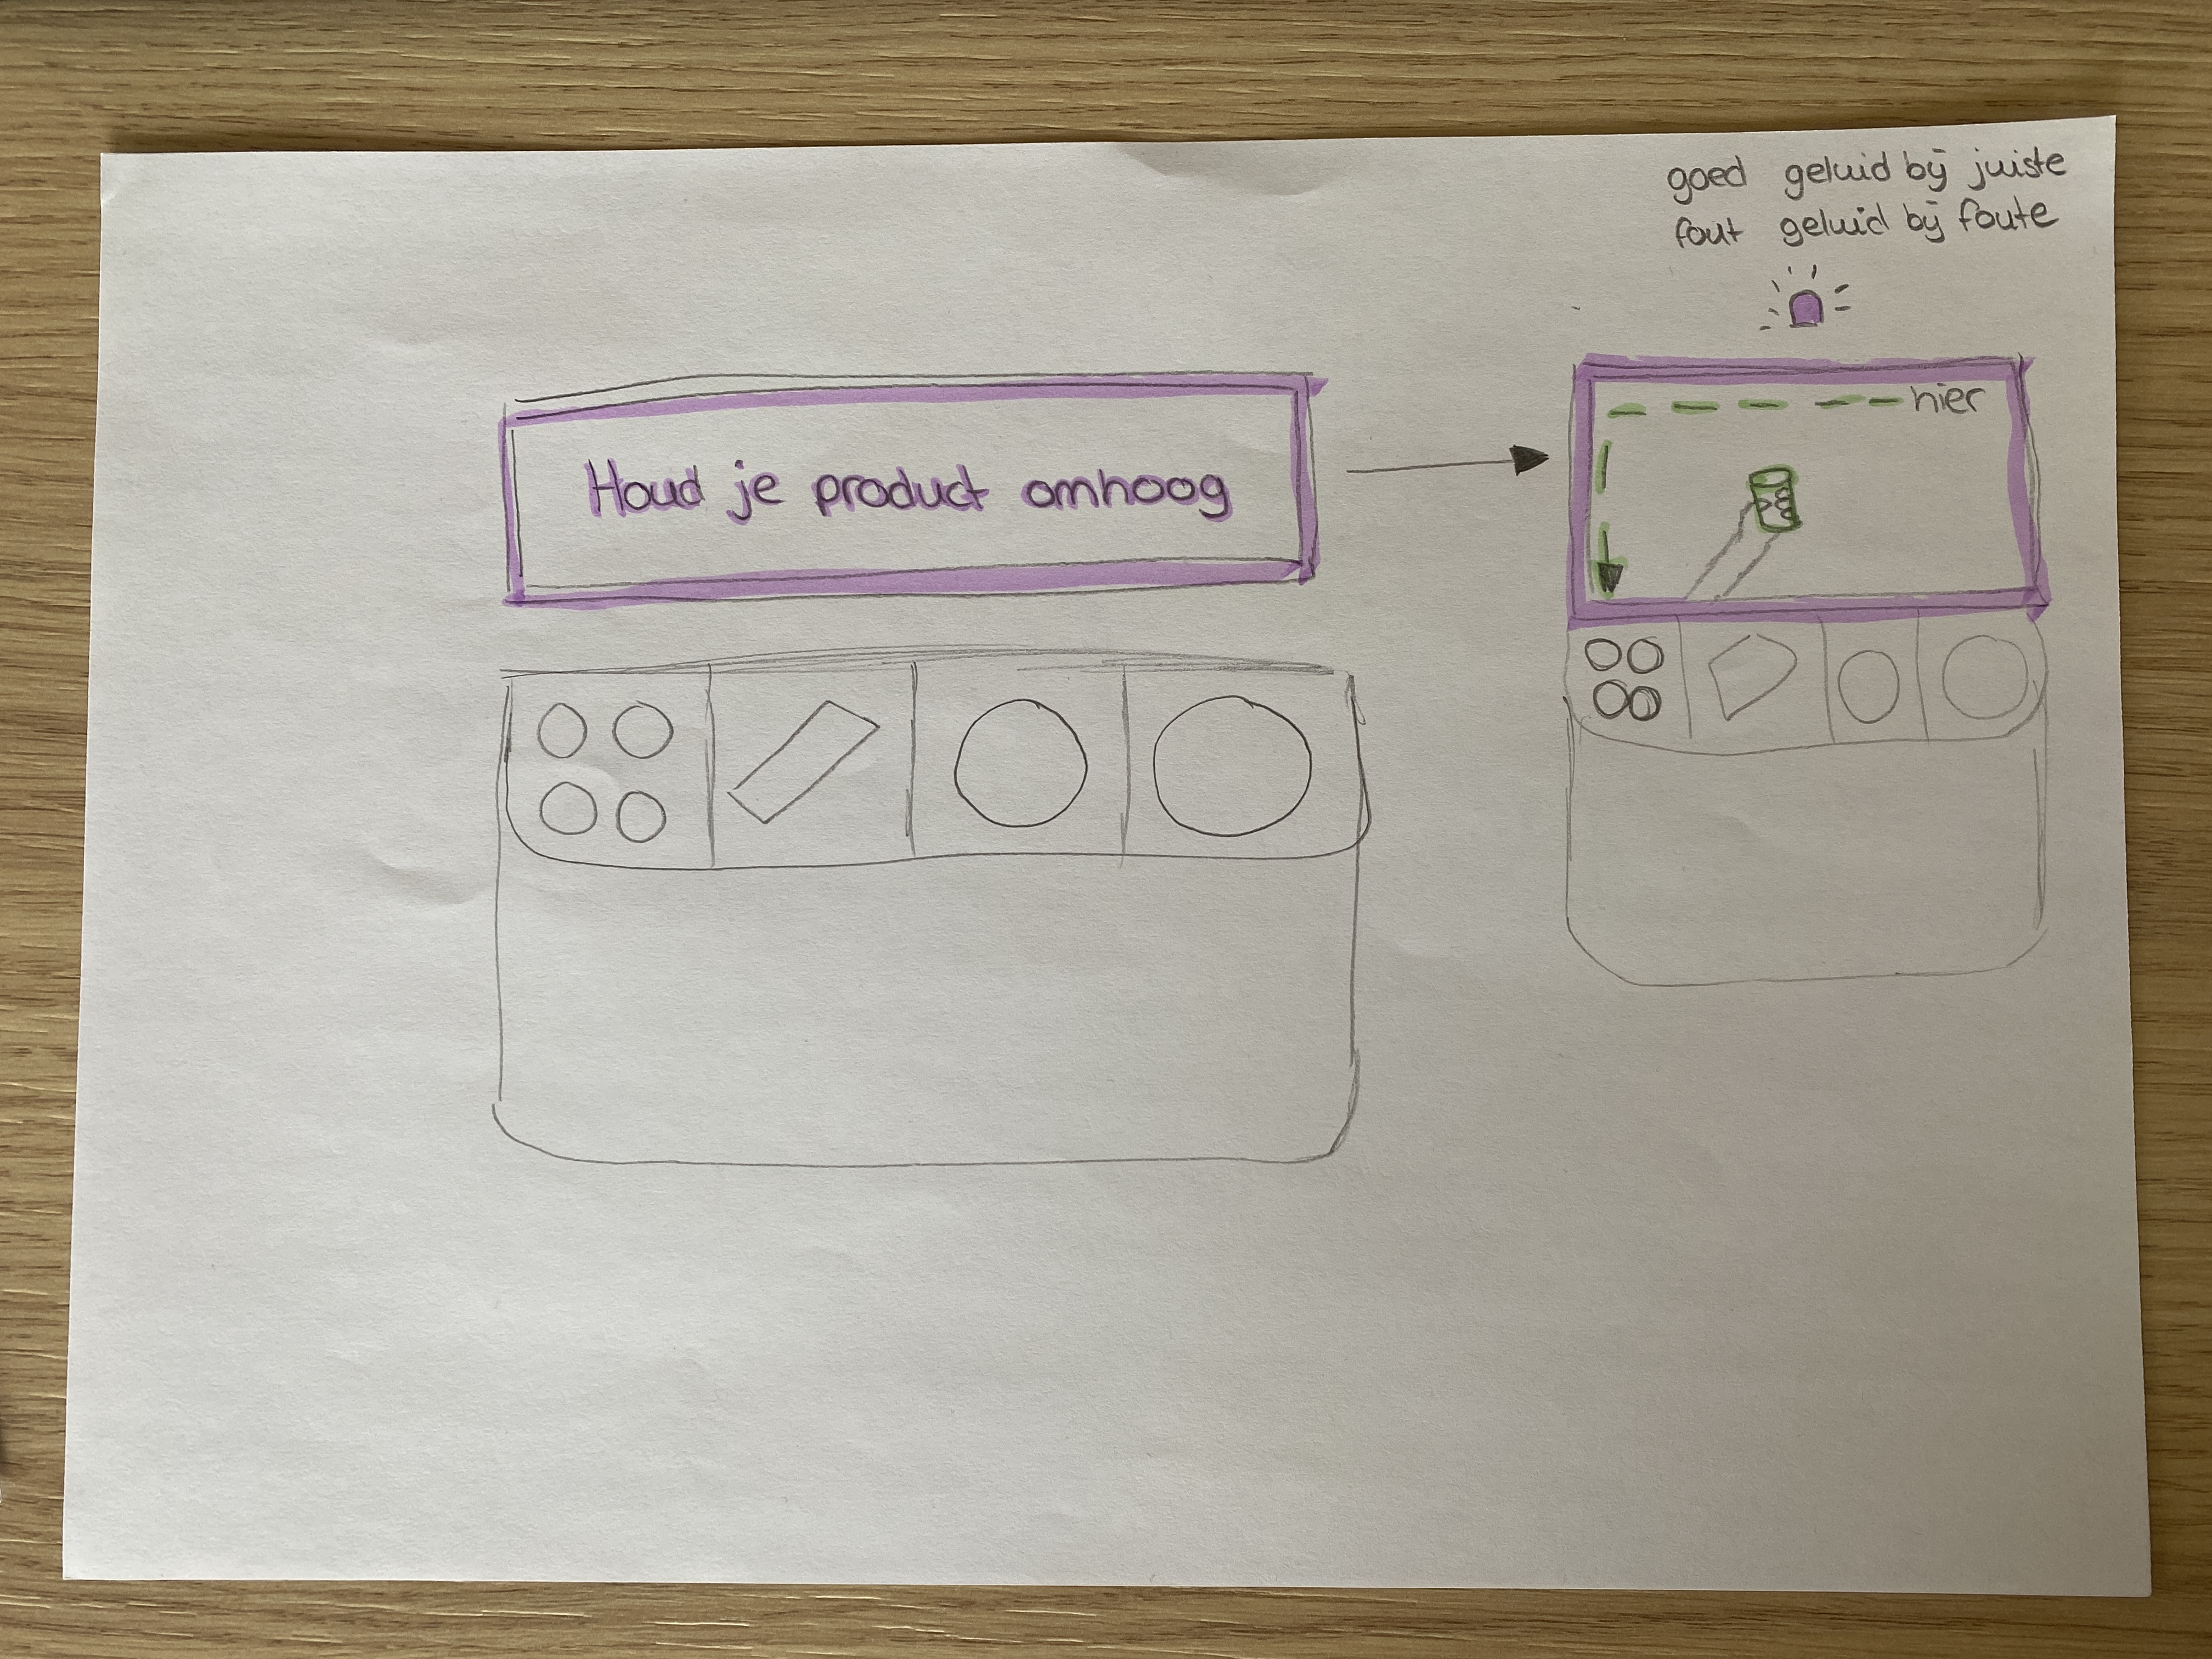 goed geluid bij juiste
fout geluid bij foute
Houd je product omhoog
hier